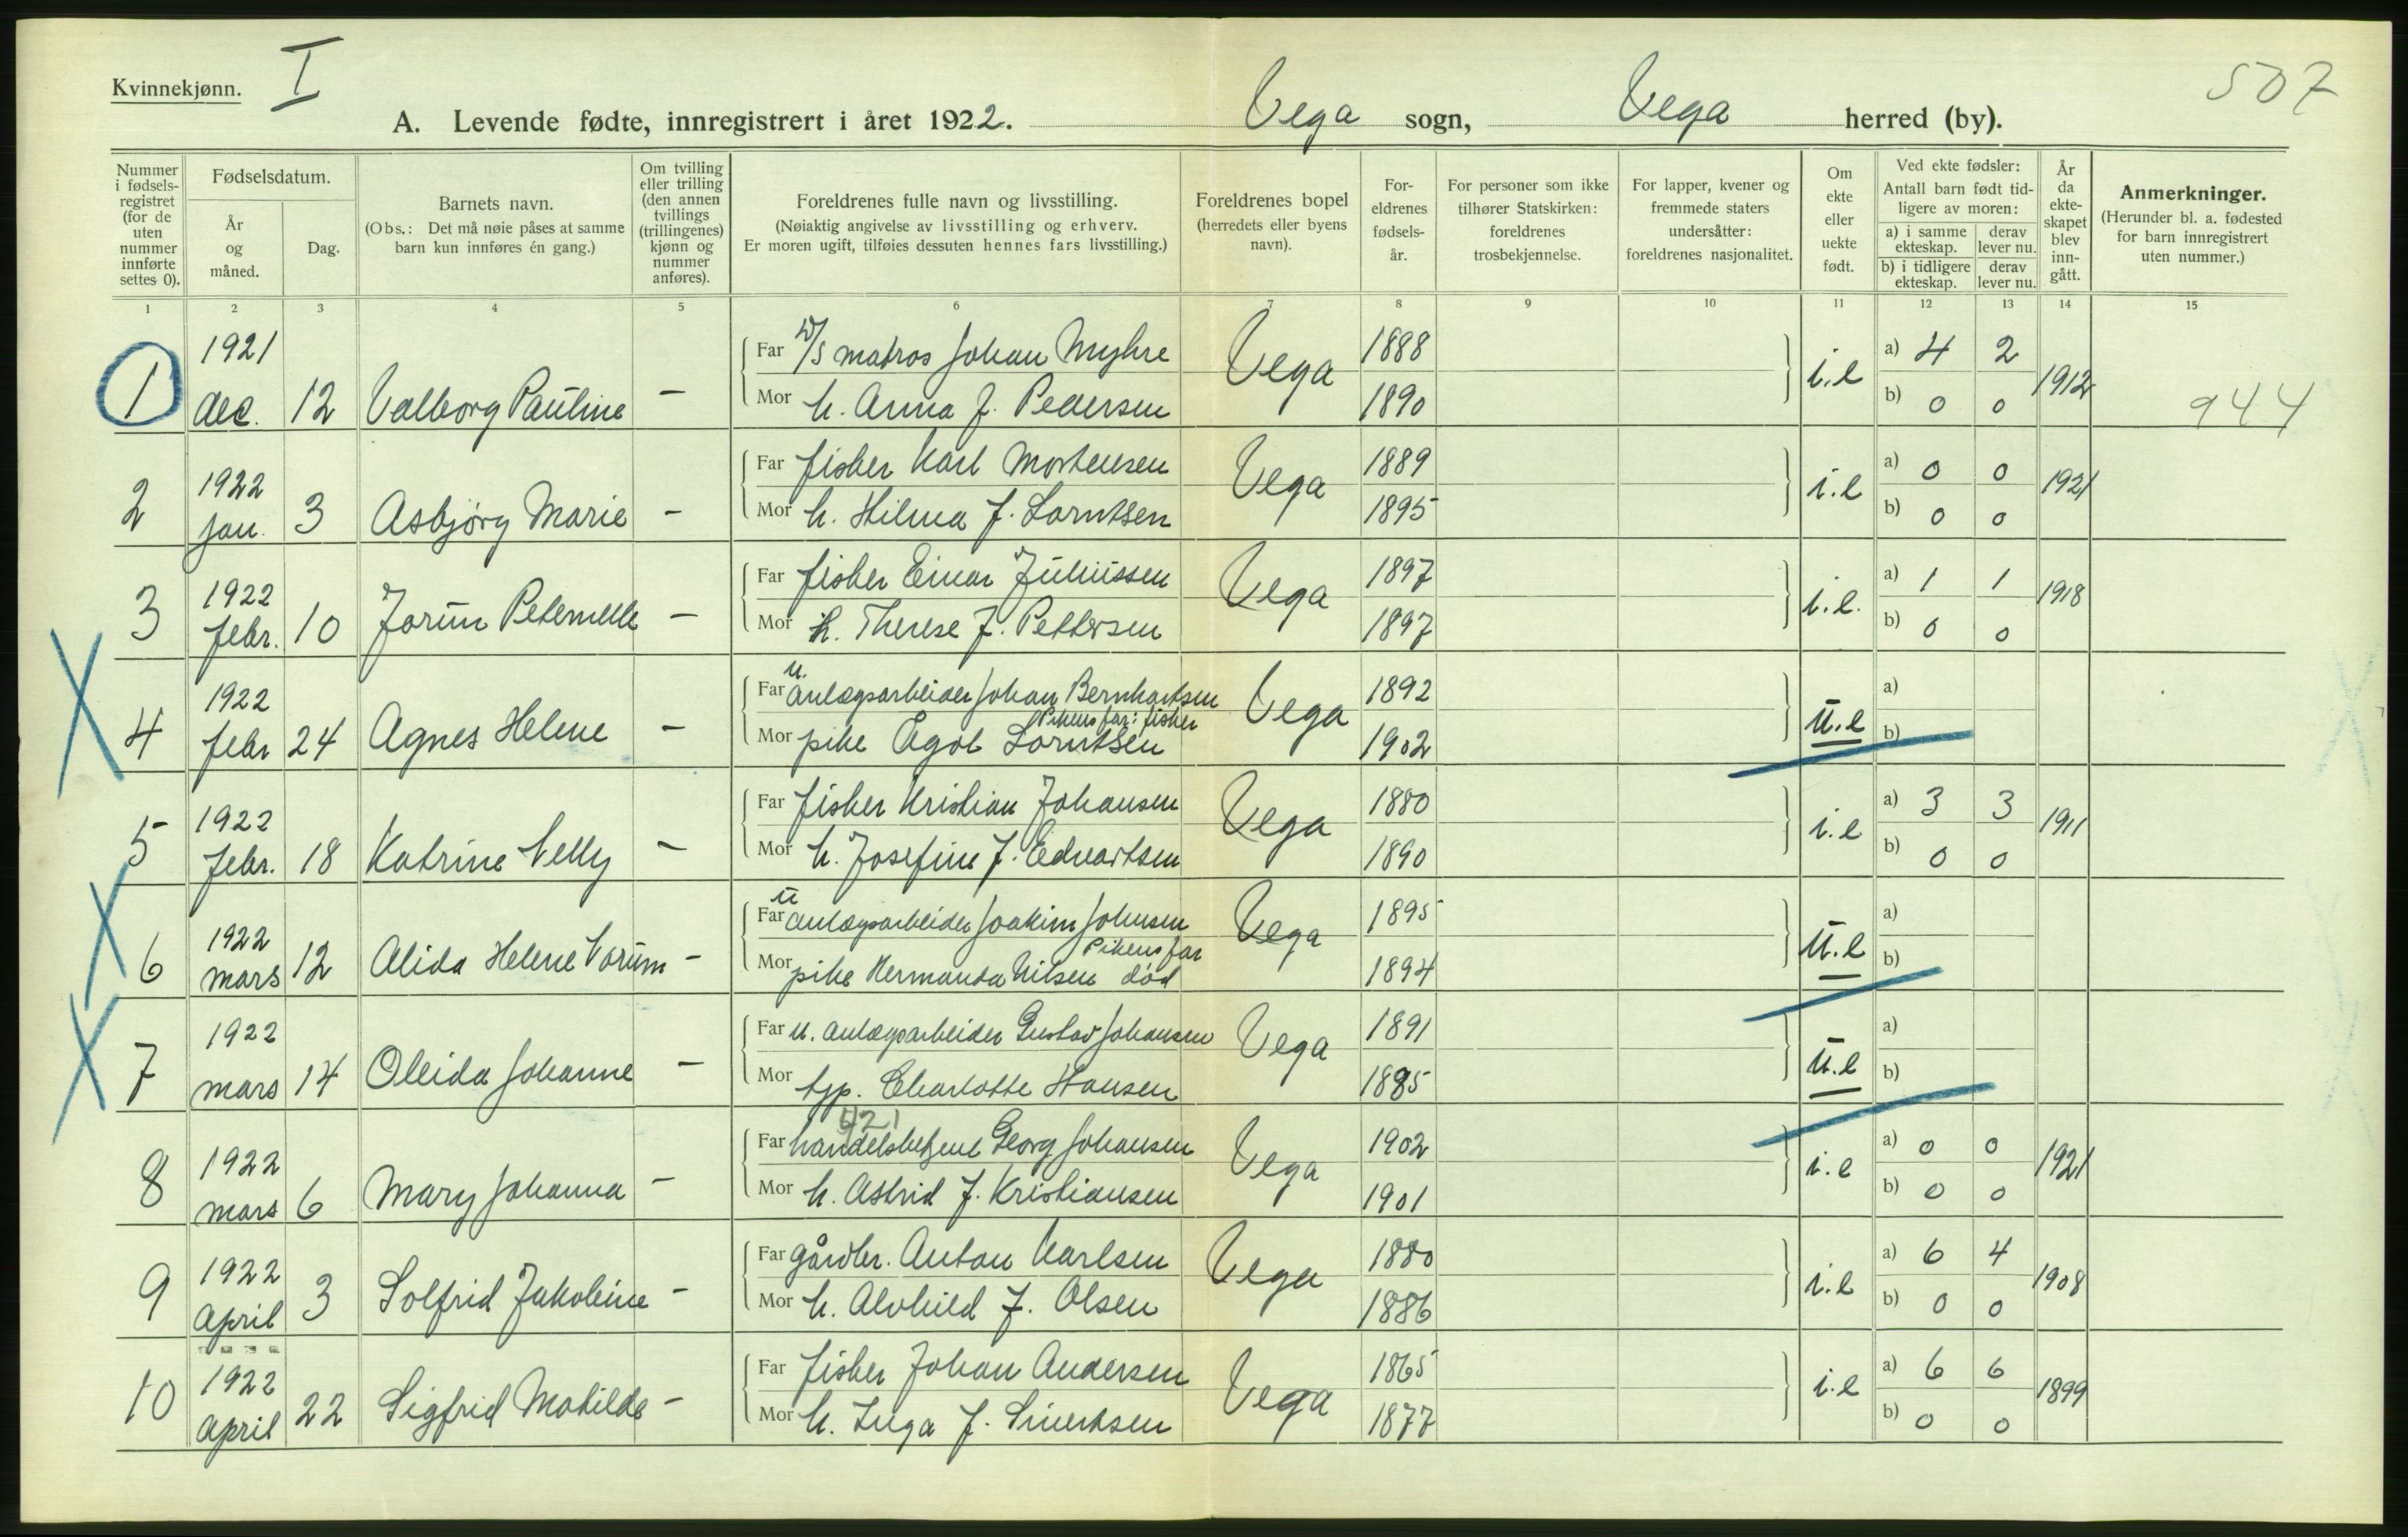 Kvinnekjønn. I
507
A. Levende fødte, innregistrert i året 1922. Vega sogn, Vega herred (by).
Nummer i fødsels-registret (for de uten nummer innførte settes 0).
Fødselsdatum.
År og måned.
Dag.
Barnets navn.
(Obs.: Det må nøie påses at samme barn kun innføres én gang.)
Om tvilling eller trilling (den annen tvillings (trillingenes) kjønn og nummer anføres).
Foreldrenes fulle navn og livsstilling.
(Nøiaktig angivelse av livsstilling og erhverv.
Er moren ugift, tilføies dessuten hennes fars livsstilling.)
Foreldrenes bopel
(herredets eller byens navn).
For-eldrenes fødsels-år.
For personer som ikke tilhører Statskirken: foreldrenes trosbekjennelse.
For lapper, kvener og fremmede staters undersåtter: foreldrenes nasjonalitet.
Om ekte eller uekte født.
Ved ekte fødsler:
Antall barn født tid-ligere av moren:
a) i samme ekteskap. derav lever nu.
b) i tidligere ekteskap. derav lever nu.
År da ekte-skapet blev inn-gått.
Anmerkninger.
(Herunder bl. a. fødested for barn innregistrert uten nummer.)
1 2 3 4 5 6 7 8 9 10 11 12 13 14 15
1921 Far matros Johan Myhre Vega 1888 i.e a) 4 2 1912
1 dec. 12 Valborg Pauline - Mor h. Anna f. Pedersen 1890 b) 0 0 944
1922 Far fisker Karl Mortensen Vega 1889 i.e a) 0 0 1921
2 jan. 3 Asbjørg Marie - Mor h. Hilma f. Lorntsen 1895 b) 0 0
1922 Far fisker Einar Juliussen Vega 1897 i.e. a) 1 1 1918
3 febr. 10 Jorun Peternelle - Mor h. Therese f. Pettersen 1897 b) 0 0
1922 Far u. anlægsarbeider Johan Bernhartsen Vega 1892 u.e a)
Pikens far: fisker
4 febr 24 Agnes Helene - Mor pike Lorntsen 1902 b)
1922 Far fisker Kristian Johansen Vega 1880 i.e a) 3 3 1911
5 febr. 18 Katrine Nelly - Mor h. Josefine f. Edvartsen 1890 b) 0 0
1922 Far u anlægsarbeider Joakim Johnsen Vega 1895 u.e a)
Pikens far
6 mars 12 Alida Helene Norum - Mor pike Hermanda Nilsen død 1894 b)
1922 Far u. anlægsarbeider Gustav Johansen Vega 1891 u.e a)
7 mars 14 Oleida Johanne - Mor tjp. Charlotte Hansen 1895 b)
921
1922 Far handelsbetjent Georg Johansen Vega 1902 i.e a) 0 0 1921
8 mars 6 Mary Johanna - Mor h. Astrid f. Kristiansen 1901 b) 0 0
1922 Far gårdbr. Anton Karlsen Vega 1880 i.e a) 6 4 1908
9 april 3 Solfrid Jakobine - Mor h. Alvhild f. Olsen 1886 b) 0 0
1922 Far fisker Johan Andersen Vega 1865 i.e a) 6 6 1899
10 april 22 Sigfrid Matilde - Mor h. Inga f. Sivertsen 1877 b) 0 0